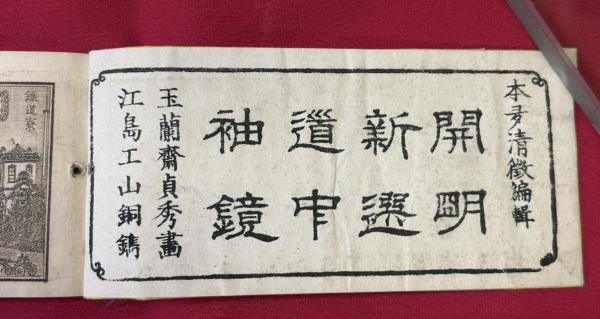 本多清徴編輯
開明
新選
道中
袖鏡
玉蘭齋貞秀畫
江島工山銅鐫
鐵道寮